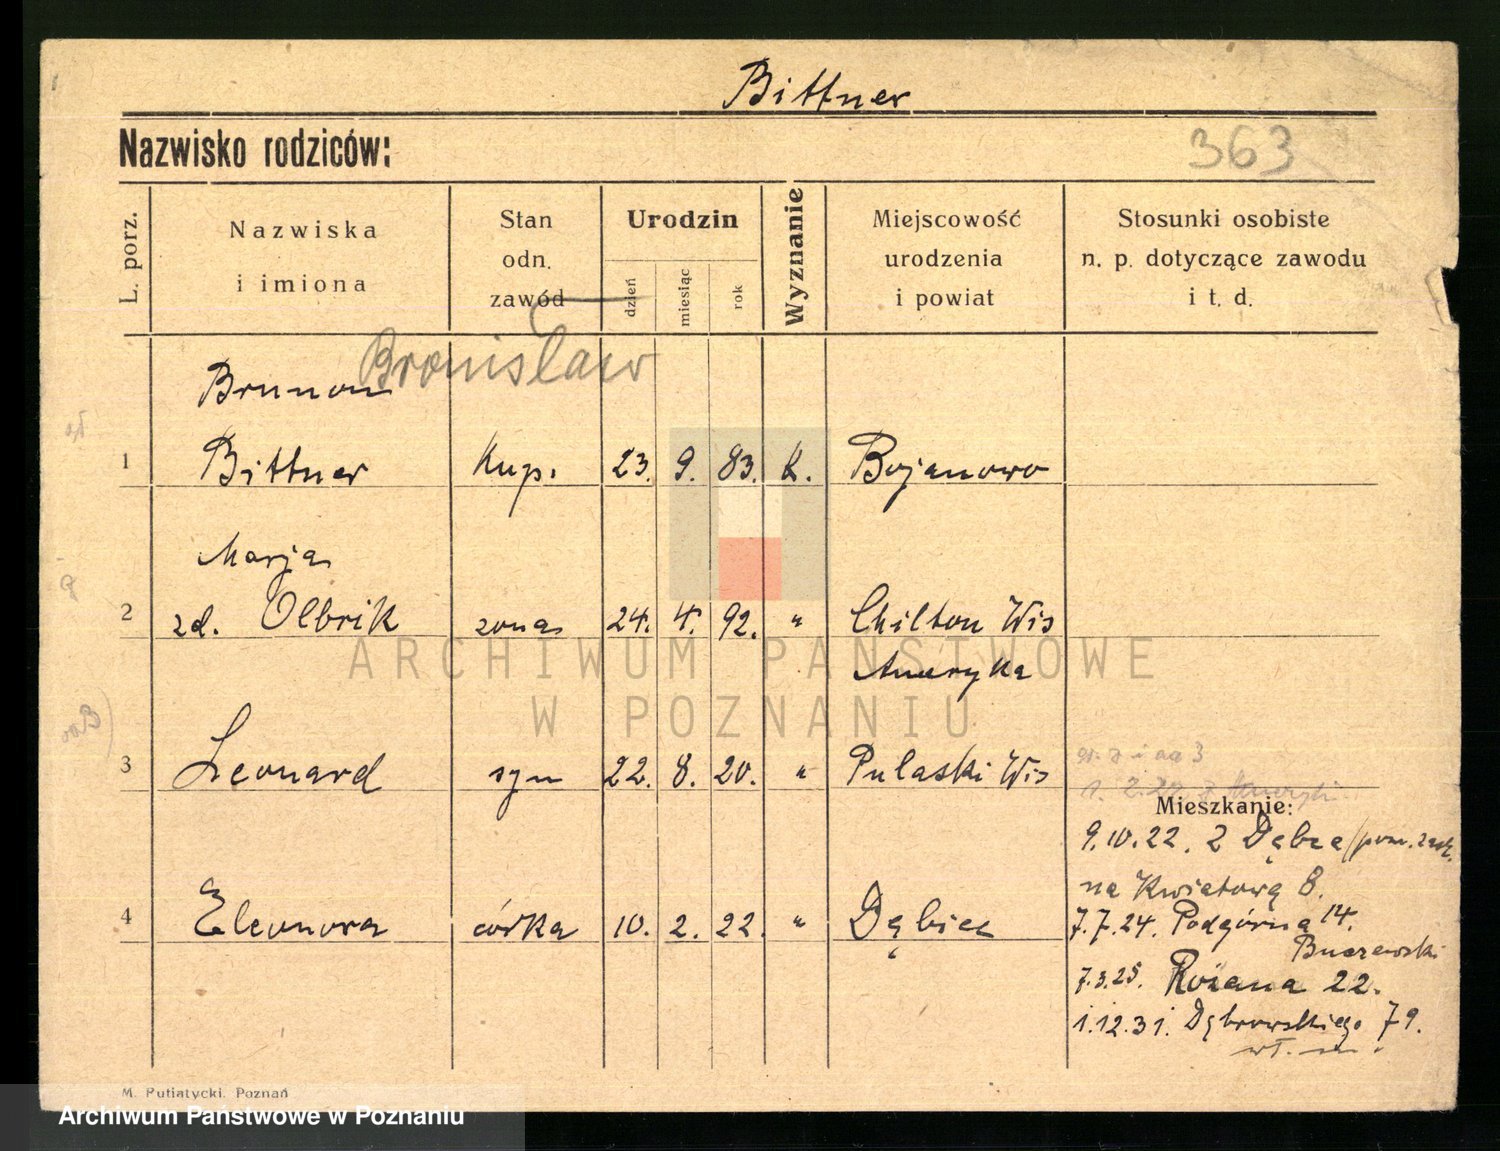 Bittner
Nazwisko rodziców:
363
L. porz.
Nazwiska
i imiona
Stan
odn.
zawód
Urodzin
dzień
miesiąc
rok
Wyznanie
Miejscowość
urodzenia
i powiat
Stosunki osobiste
n. p. dotyczące zawodu
i t. d.
Brunon Bronisław
1 Bittner Kup. 23. 9. 83. k. Bojanowo
Marja
2 zd. Olbrik żona 24. 4. 92. " Chilton Wis
Ameryka
3 Leonard syn 22. 8. 20. " Pulaski Wis
Mieszkanie:
9.10.22. z Dębca
na Kwiatową 8.
4 Eleonora córka 10. 2. 22. " Dębiec
7.7.24. Podgórna 14.
7.3.25. Różana 22.
1.12.31. Dąbrowskiego 79.
ARCHIWUM PAŃSTWOWE
W POZNANIU
M. Putiatycki. Poznań
Archiwum Państwowe w Poznaniu